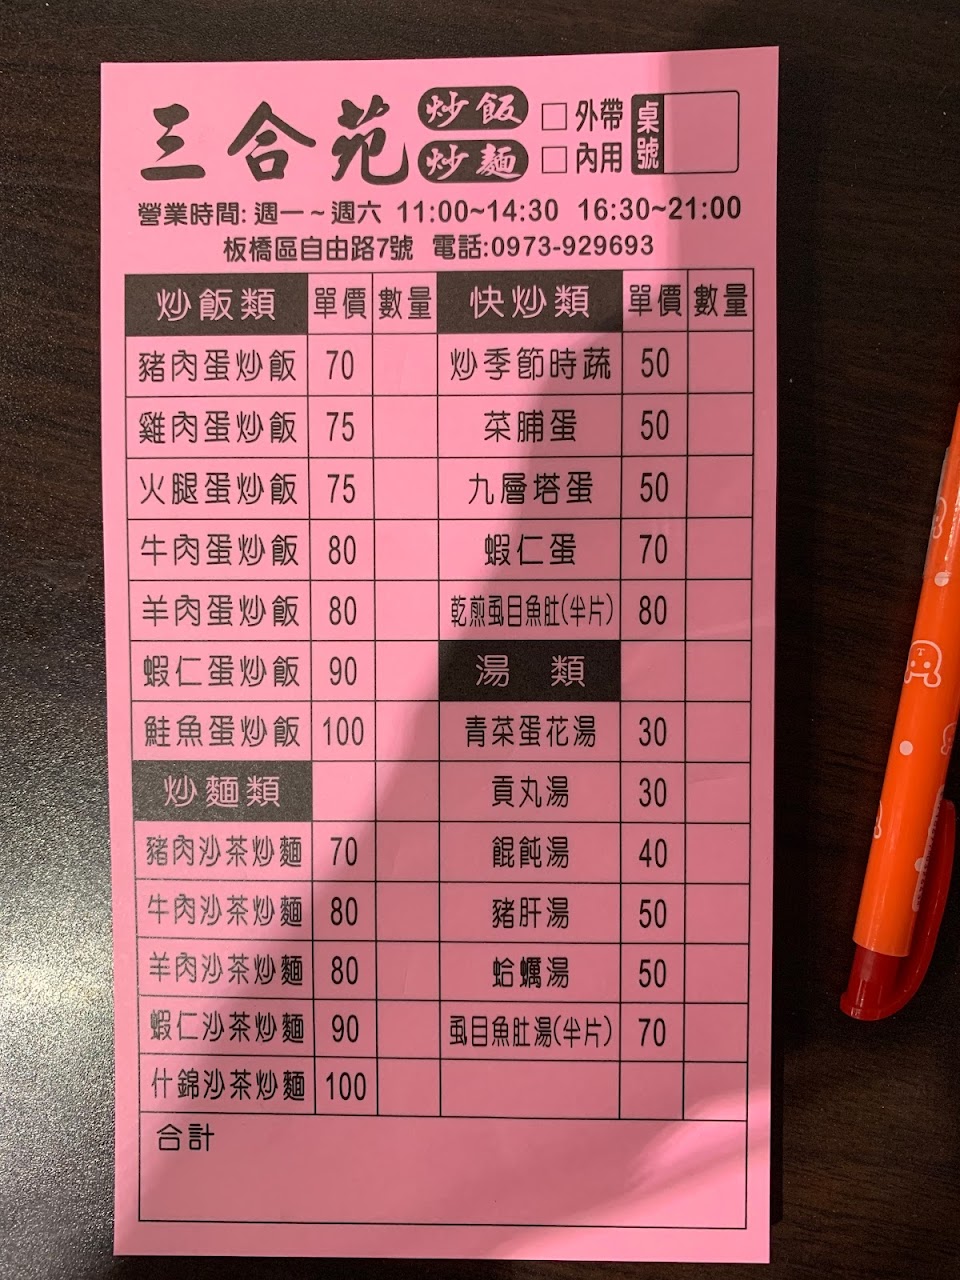 三合苑 炒飯 炒麵 □外帶 □內用 桌號
營業時間: 週一~週六 11:00~14:30 16:30~21:00
板橋區自由路7號 電話:0973-929693
炒飯類 單價 數量 快炒類 單價 數量
豬肉蛋炒飯 70 炒季節時蔬 50
雞肉蛋炒飯 75 菜脯蛋 50
火腿蛋炒飯 75 九層塔蛋 50
牛肉蛋炒飯 80 蝦仁蛋 70
羊肉蛋炒飯 80 乾煎虱目魚肚(半片) 80
蝦仁蛋炒飯 90 湯 類
鮭魚蛋炒飯 100 青菜蛋花湯 30
炒麵類 貢丸湯 30
豬肉沙茶炒麵 70 餛飩湯 40
牛肉沙茶炒麵 80 豬肝湯 50
羊肉沙茶炒麵 80 蛤蠣湯 50
蝦仁沙茶炒麵 90 虱目魚肚湯(半片) 70
什錦沙茶炒麵 100
合計